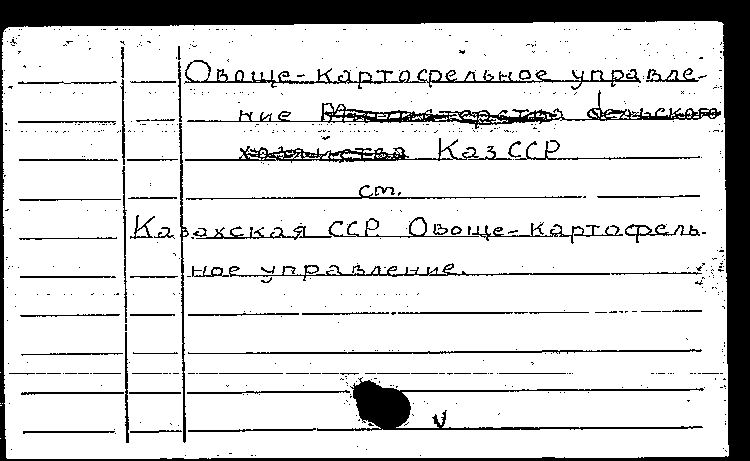 Овоще-картофельное управле-
ние Министерства сельского
хозяйства КазССР
ст.
Казахская ССР Овоще-картофель-
ное управление.
v